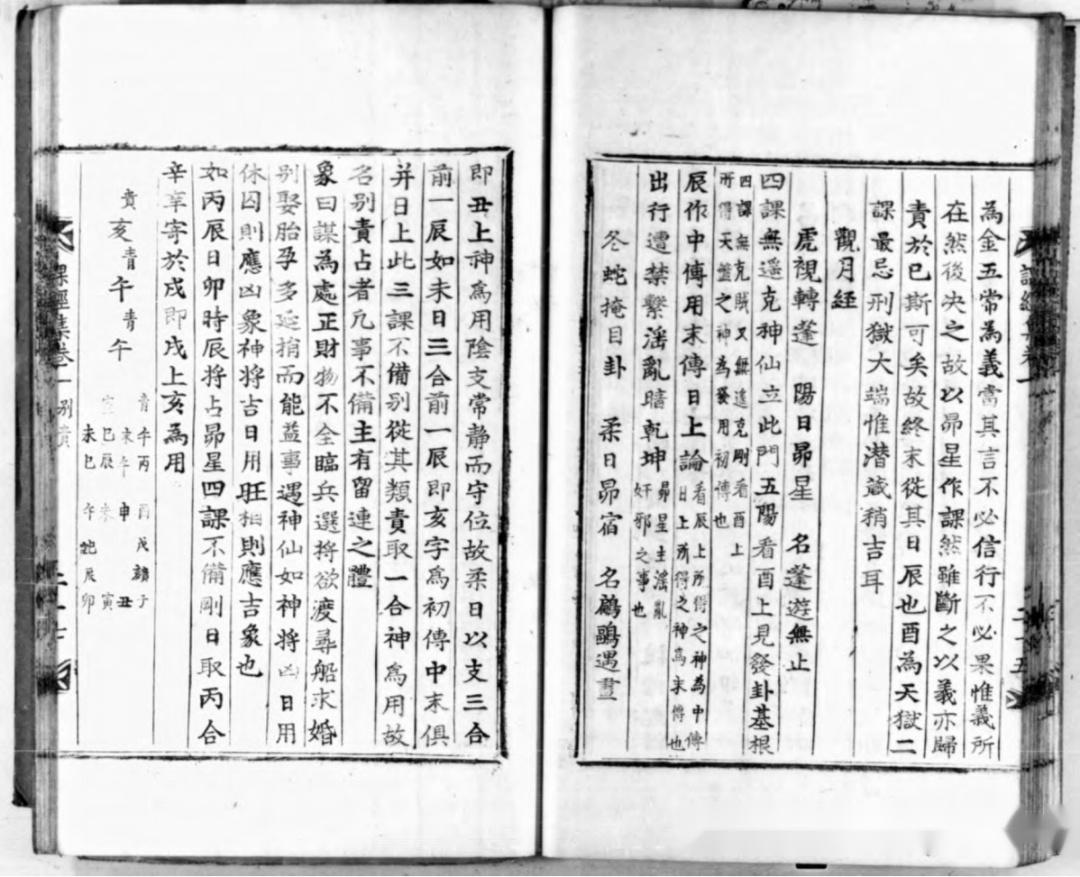 為金五常為義當其言不必信行不必果惟義所
在然後决之故以昴星作課然雖斷之以義亦歸
責於巳斯可矣故終末從其日辰也酉為天獄二
課最忌刑獄大端惟潜藏稍吉耳
觀月經
虎視轉蓬 陽日昴星 名蓬遊無止
四課無遥克神仙立此門五陽看酉上見發卦基根
四課無克賊又無遙克剛看酉上
所得天盤之神為發用初傳也
辰作中傳用末傳日上論看辰上所得之神為中傳
日上所得之神為末傳也
出行遭禁繫滛亂暗乾坤昴星主滛亂
奸邪之事也
冬蛇掩目卦 柔日昴宿 名鷸鷁遇晝
即丑上神爲用陰支常靜而守位故柔日以支三合
前一辰如未日三合前一辰即亥字爲初傳中末俱
并日上此三課不備别從其類責取一合神爲用故
名别責占者凡事不備主有留連之體
象曰謀為處正財物不全臨兵選將欲渡尋船求婚
别娶胎孕多延捎而能益事遇神仙如神將凶日用
休囚則應凶象神將吉日用旺相則應吉象也
如丙辰日卯時辰將占昴星四課不備剛日取丙合
辛辛寄於戌即戌上亥為用
貴亥
青午
青午
青午丙 酉戌 子
未午 申 丑
巳辰 未 寅
未巳 午 辰卯
課經集卷一 别責